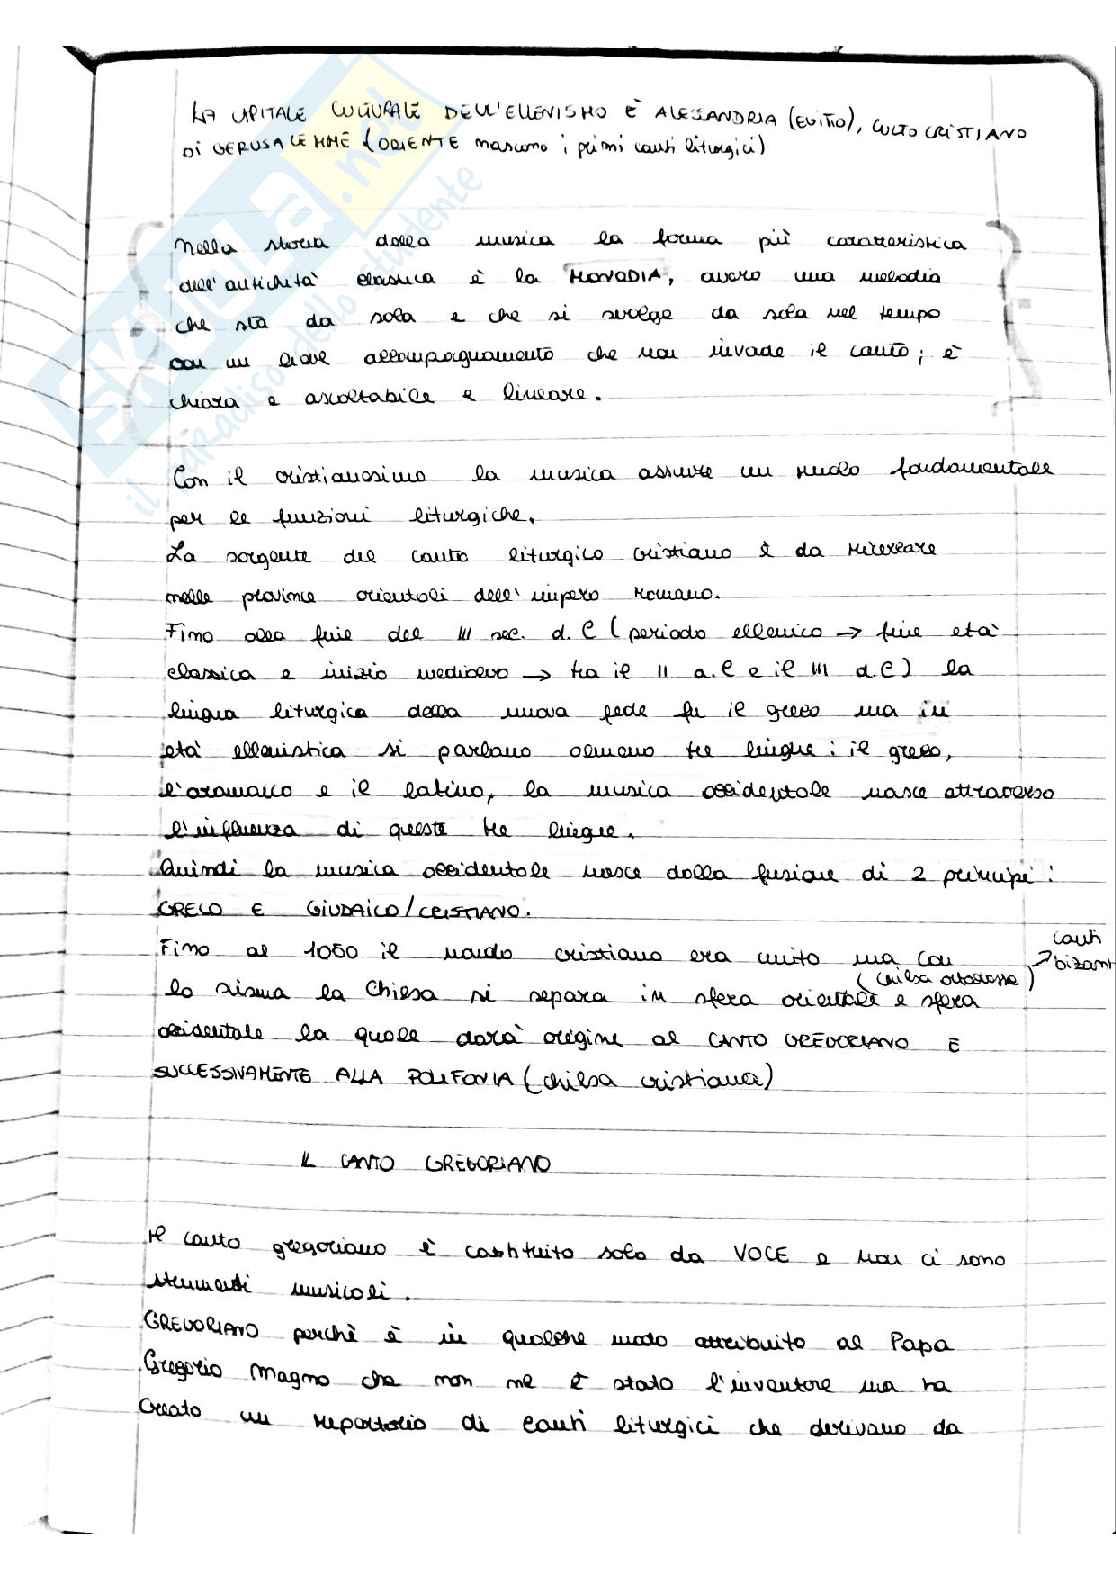 LA CAPITALE CULTURALE DELL'ELLENISMO È ALESSANDRIA (EGITTO), CULTO CRISTIANO
DI GERUSALEMME (ORIENTE nascono i primi canti liturgici)
Nella storia della musica la forma più caratteristica
dell'antichità classica è la MONODIA, ovvero una melodia
che sta da sola e che si svolge da sola nel tempo
con un lieve accompagnamento che non invade il canto; è
chiara e ascoltabile e lineare.
Con il cristianesimo la musica assume un ruolo fondamentale
per le funzioni liturgiche.
La sorgente del canto liturgico cristiano è da ricercare
nelle province orientali dell'impero Romano.
Fino alla fine del III sec. d.C (periodo ellenico → fine età
classica e inizio medioevo → tra il II a.C e il III d.C) la
lingua liturgica della nuova fede fu il greco ma in
età ellenistica si parlano almeno tre lingue: il greco,
l'aramaico e il latino, la musica occidentale nasce attraverso
l'influenza di queste tre lingue.
Quindi la musica occidentale nasce dalla fusione di 2 principi:
GRECO E GIUDAICO/CRISTIANO.
Fino al 1050 il mondo cristiano era unito ma con
(chiesa ortodossa) → canti bizant
lo scisma la Chiesa si separa in sfera orientale e sfera
occidentale la quale darà origine al CANTO GREGORIANO E
SUCCESSIVAMENTE ALLA POLIFONIA (chiesa cristiana)
IL CANTO GREGORIANO
Il canto gregoriano è costituito solo da VOCE e non ci sono
strumenti musicali.
GREGORIANO perchè è in qualche modo attribuito al Papa
Gregorio Magno che non ne è stato l'inventore ma ha
creato un repertorio di canti liturgici che derivano da
SKUOLA.net
il paradiso dello studente